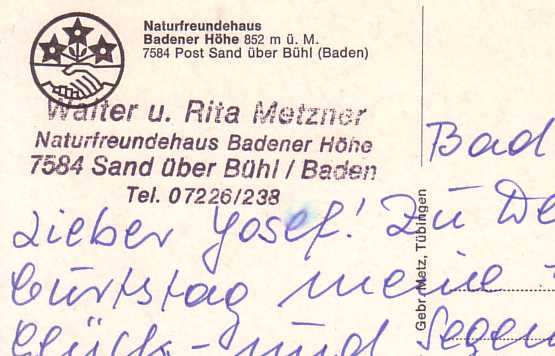 Naturfreundehaus
Badener Höhe 852 m ü. M.
7584 Post Sand über Bühl (Baden)
Walter u. Rita Metzner
Naturfreundehaus Badener Höhe
7584 Sand über Bühl / Baden
Tel. 07226/238
Bad
Lieber Josef! Zu De
burtstag meine
Glück- und Segen
Gebr. Metz, Tübingen